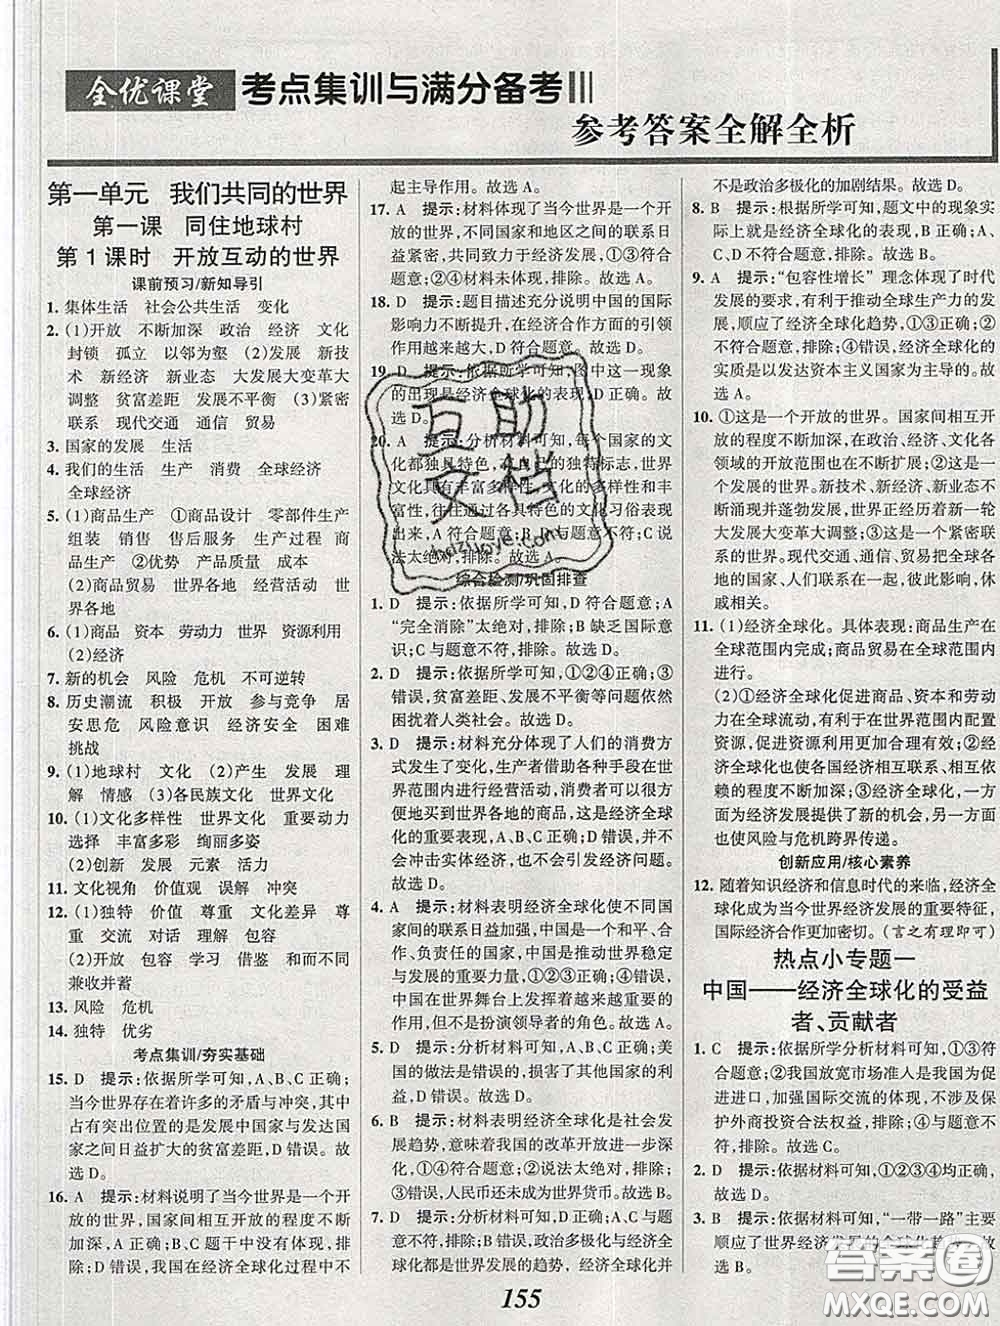 全优课堂 考点集训与满分备考Ⅲ
参考答案全解全析
第一单元 我们共同的世界
第一课 同住地球村
第1课时 开放互动的世界
课前预习/新知导引
1. 集体生活 社会公共生活 变化
2. (1)开放 不断加深 政治 经济 文化
封锁 孤立 以邻为壑 (2)发展 新技
术 新经济 新业态 大发展大变革大
调整 贫富差距 发展不平衡 (3)紧密
联系 现代交通 通信 贸易
3. 国家的发展 生活
4. 我们的生活 生产 消费 全球经济
全球经济
5. (1)商品生产 ①商品设计 零部件生产
组装 销售 售后服务 生产过程 商
品生产 ②优势 产品质量 成本
(2)商品贸易 世界各地 经营活动 世
界各地
6. (1)商品 资本 劳动力 世界 资源利用
(2)经济
7. 新的机会 风险 危机 不可逆转
8. 历史潮流 积极 开放 参与竞争 居
安思危 风险意识 经济安全 困难
挑战
9. (1)地球村 文化 (2)产生 发展 理
解 情感 (3)各民族文化 世界文化
10. (1)文化多样性 世界文化 重要动力
选择 丰富多彩 绚丽多姿
(2)创新 发展 元素 活力
11. 文化视角 价值观 误解 冲突
12. (1)独特 价值 尊重 文化差异 尊
重 交流 对话 理解 包容
(2)开放 包容 学习 借鉴 和而不同
兼收并蓄
13. 风险 危机
14. 独特 优劣
考点集训/夯实基础
15. D 提示:依据所学可知,A、B、C正确;
当今世界存在着许多的矛盾与冲突,其中
占有突出位置的是发展中国家与发达国
家之间日益扩大的贫富差距,D错误。故
选D。
16. A 提示:材料说明了当今世界是一个开
放的世界,国家间相互开放的程度不断
加深,A符合题意;B、C题干中没有体现,排
除;D错误,我国在经济全球化过程中不
起主导作用。故选A。
17. A 提示:材料体现了当今世界是一个开
放的世界,不同国家和地区之间的联系日
益紧密,共同致力于经济发展,①③符合
题意;②④材料未体现,排除。故选A。
18. D 提示:题目描述充分说明中国的国际
影响力不断提升,在经济合作方面的引领
作用越来越大,D符合题意。故选D。
19. D 提示:依据所学可知,图中这一现象
的出现是经济全球化的表现,D正确。故
选D。
20. A 提示:分析材料可知,每个国家的文
化都独具特色,有自己的独特标志,世界
文化具有丰富多样性,文化的丰富多样
性,往往通过各具特色的文化习俗表现
出来,A符合题意;B、D未体现,排除;C说
法太绝对,排除。故选A。
综合检测/巩固排查
1. D 提示:依据所学可知,D符合题意;A
“完全消除”太绝对,排除;B缺乏国际意
识;C与示意图不符,排除。故选D。
2. D 提示:依据所学可知,①②④正确;③
错误,贫富差距、发展不平衡等问题依然
困扰着人类社会。故选D。
3. D 提示:材料充分体现了人们的消费方
式发生了变化,生产者借助各种手段在世
界范围内进行经营活动,消费者可以很方
便地买到世界各地的商品,这是经济全球
化的重要表现,A、B、C正确;D错误,并不
会冲击实体经济,也不会引发经济问题。
故选D。
4. A 提示:材料表明经济全球化使不同国
家间的联系日益加强,中国是一个和平、合
作、负责任的国家,中国是推动世界经济
发展的重要力量,①②③正确;④错误,中
国在世界舞台上发挥着越来越重要的作
用,但不是扮演领导角色。故选A。
5. D 提示:分析材料可知,A、B、C正确;美
国的做法是错误的,损害了其他国家的利
益,D错误。故选D。
6. B 提示:材料表明经济全球化是社会发
展趋势,意味着我国的改革开放进一步深
化,①④正确;②说法太绝对,排除;
③错误,人民币还未成为世界货币。故选B。
7. D 提示:分析材料可知,A、B、C正确;D
错误,政治多极化与经济
全球化都是世界发展的趋势,经济全球化并
不是政治多极化的加剧结果。故选D。
8. B 提示:根据所学可知,题文中的现象实
际上就是经济全球化的表现,B正确;A、
C、D不符合题意,排除。故选B。
9. A 提示:“包容性增长”理念体现了时代
发展的要求,有利于推动全球生产力的发
展,顺应了经济全球化趋势,①③正确;②
不符合题意,排除;④错误,经济全球化的
实质是以发达资本主义国家为主导的。故
选A。
10. ①这是一个开放的世界。国家间相互开
放的程度不断加深,在政治、经济、文化各
领域的开放范围也在不断扩展;②这是一
个发展的世界。新技术、新经济、新业态不
断涌现并蓬勃发展,世界正经历新一轮
大发展大变革大调整;③这是一个紧密联
系的世界。现代交通、通信、贸易把全球各
地的国家、人们联系在一起,彼此影响,休
戚与共。
11. (1)经济全球化。具体表现:商品生产在
全球范围内完成;商品贸易在全球范围内
进行。
(2)①经济全球化促进商品、资本和劳动
力在全球流动,有利于在世界范围内配置
资源,促进资源利用更加合理有效;②经
济全球化也使各国经济相互联系、相互依
赖的程度不断加深;③经济全球化,一方
面为经济发展提供了新的机会,另一方面
也使风险与危机跨界传递。
创新应用/核心素养
12. 随着知识经济和信息时代的来临,经济全
球化成为当今世界经济发展的重要特征,
国际经济合作更加密切。(言之有理即可)
热点小专题一
中国——经济全球化的受益
者、贡献者
1. C 提示:依据所学分析材料可知,①③符
合题意;②我国放宽市场准入是为了促
进进口,加强国际交流的体现,不涉及保
护外商投资合法权益,排除;④与题意不
符,排除。故选C。
2. D 提示:依据材料可知,①②③④均正确。
故选D。
3. B 提示:依据材料可知,“一带一路”主要
顺应了世界经济发展的全球化趋势,B
155
互助
文档
hdzuoye.com
答案圈
MXQE.COM